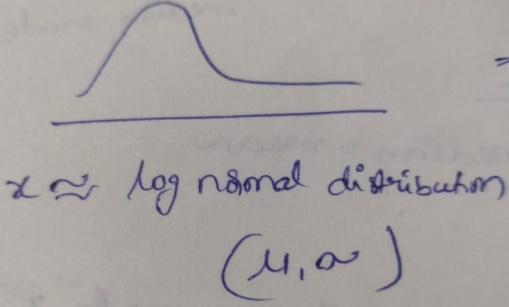 x ≈ log normal distribution
(μ, σ)